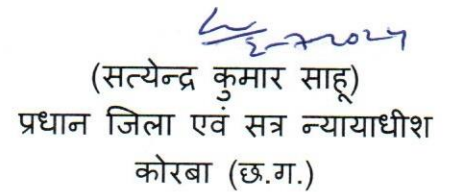 (सत्येन्द्र कुमार साहू)
प्रधान जिला एवं सत्र न्यायाधीश
कोरबा (छ.ग.)